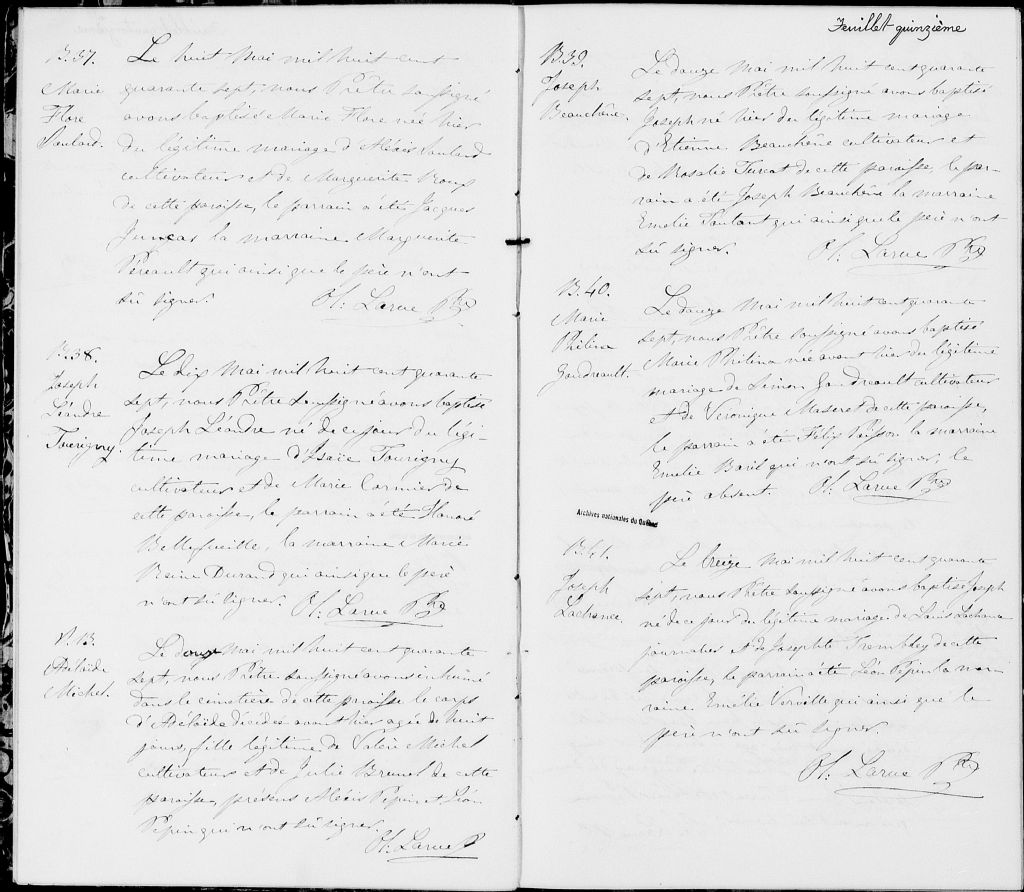 B. 37.
Marie
Flore
Le huit Mai mil huit cent
quarante sept, nous Prêtre soussigné
avons baptisé Marie Flore née hier
du légitime mariage d'Alexis
cultivateur et de Marguerite Roux
de cette paroisse, le parrain a été Jacques
la marraine Marguerite
Perreault qui ainsi que le père n'ont
su signer. Ol: Larue Ptre
B. 38.
Joseph
Léandre
Tourigny.
Le dix Mai mil huit cent quarante
sept, nous Prêtre soussigné avons baptisé
Joseph Léandre né de ce jour du légi-
time mariage d'Isaïe Tourigny
cultivateur et de Marie Cormier de
cette paroisse, le parrain a été Honoré
Bellefeuille, la marraine Marie
Reine Durand qui ainsi que le père
n'ont su signer. Ol: Larue Ptre
S. 13.
Adélaïde
Michel.
Le douze Mai mil huit cent quarante
sept, nous Prêtre soussigné avons inhumé
dans le cimetière de cette paroisse le corps
d'Adélaïde décédée avant hier agée de huit
jours, fille légitime de Valère Michel
cultivateur et de Julie Brunel de cette
paroisse, présens Alexis Pepin et Léon
Pepin qui n'ont su signer.
Ol: Larue P
Feuillet quinzième
B 39.
Joseph
Beauchêne.
Le douze Mai mil huit cent quarante
sept, nous Prêtre soussigné avons baptisé
Joseph né hier du légitime mariage
d'Etienne Beauchêne cultivateur et
de Rosalie Turcot de cette paroisse, le par-
rain a été Joseph Beauchêne la marraine
Emelie qui ainsi que le père n'ont
su signer. Ol: Larue Ptre
B. 40.
Marie
Philina
Gaudreault.
Le douze Mai mil huit cent quarante
sept, nous Prêtre soussigné avons baptisé
Marie Philina née avant hier du légitime
mariage de Simon Gaudreault cultivateur
et de Veronique de cette paroisse,
le parrain a été Félix Poisson la marraine
Emelie Baril qui n'ont su signer, le
père absent. Ol: Larue Ptre
Archives nationales du Québec
B. 41.
Joseph
Lachance
Le treize Mai mil huit cent quarante
sept, nous Prêtre soussigné avons baptisé Joseph
né de ce jour du légitime mariage de Louis Lachance
journalier et de Josephte Tremblay de cette
paroisse, le parrain a été Léon Pepin la mar-
raine Emélie Verville qui ainsi que le
père n'ont su signer.
Ol: Larue Ptre